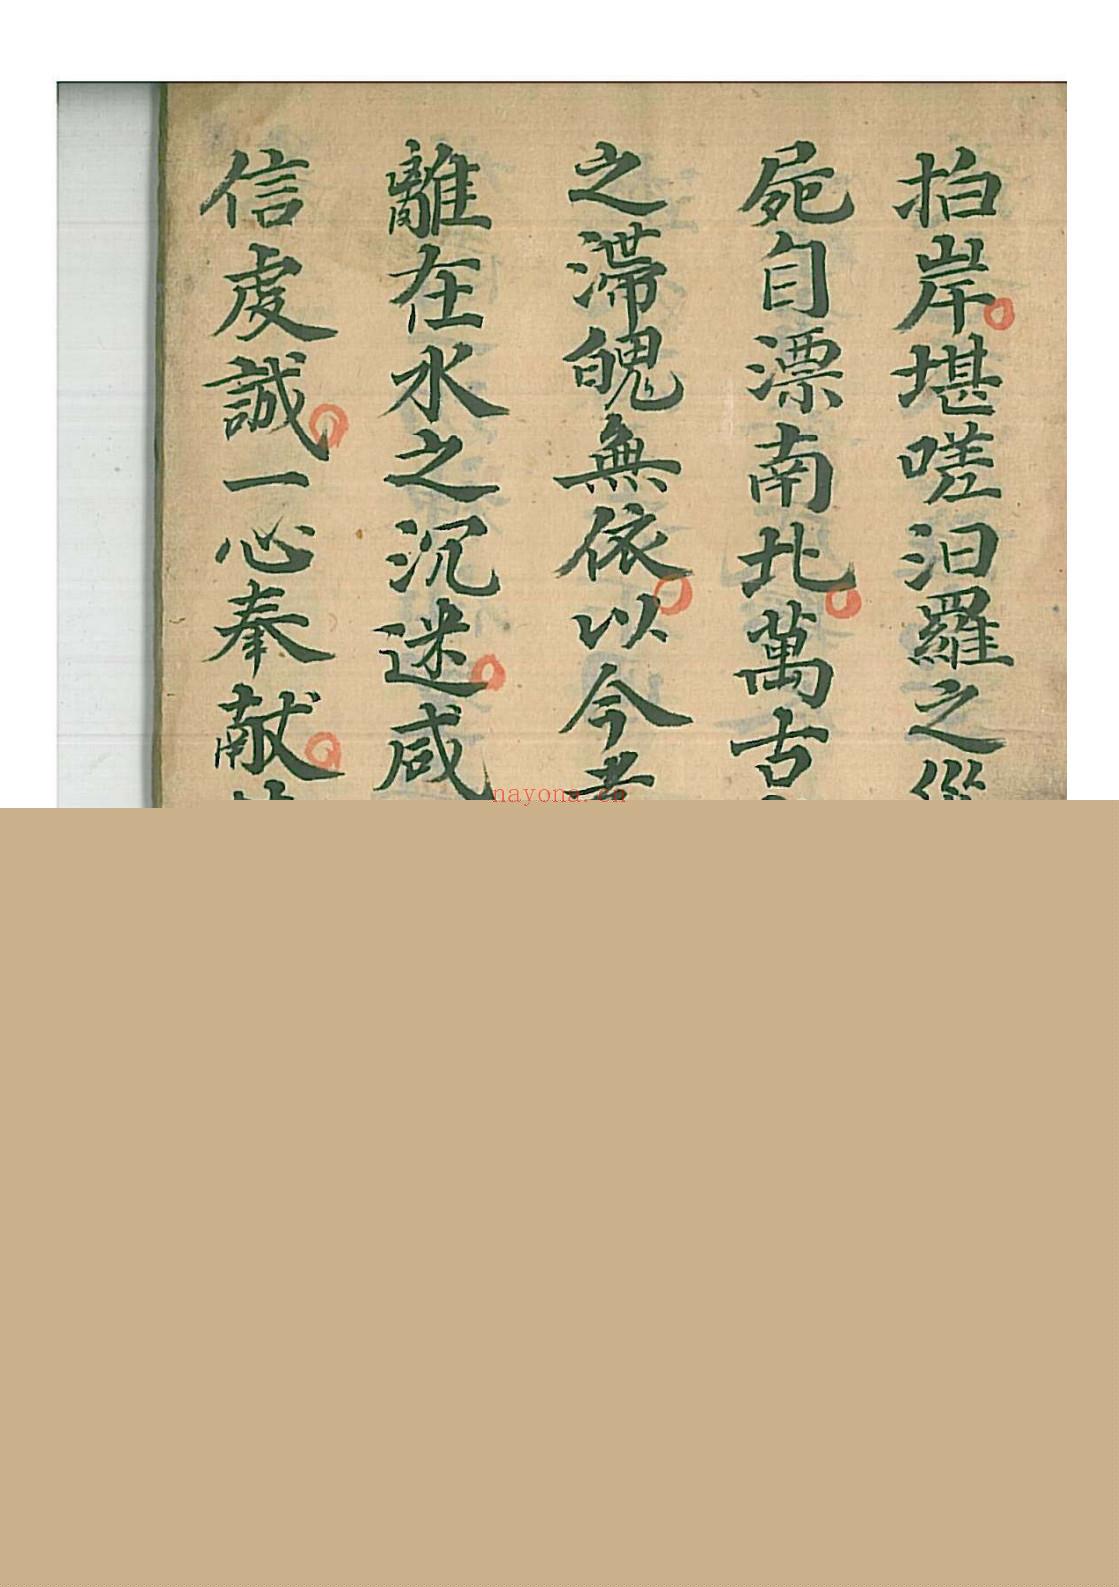 拍岸堪嗟汨羅之
屍自漂南北萬古
之滯魄無依以今
離在水之沉迷咸
信虔誠一心奉献
nayona.cn